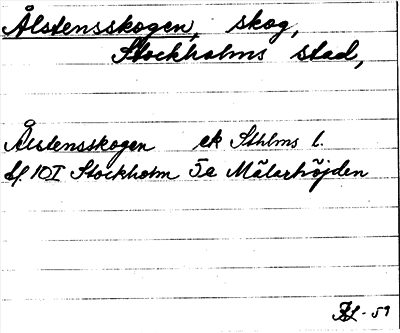 Ålstensskogen, skog,
Stockholms stad,
Ålstensskogen ek Sthlms l.
bl. 10I Stockholm 5e Mälarhöjden
ÅL-59